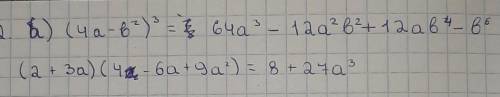 б) (4a-b²)³ = 64a³ - 12a²b² + 12ab⁴ - b⁶
(2 + 3a)(4 - 6a + 9a²) = 8 + 27a³